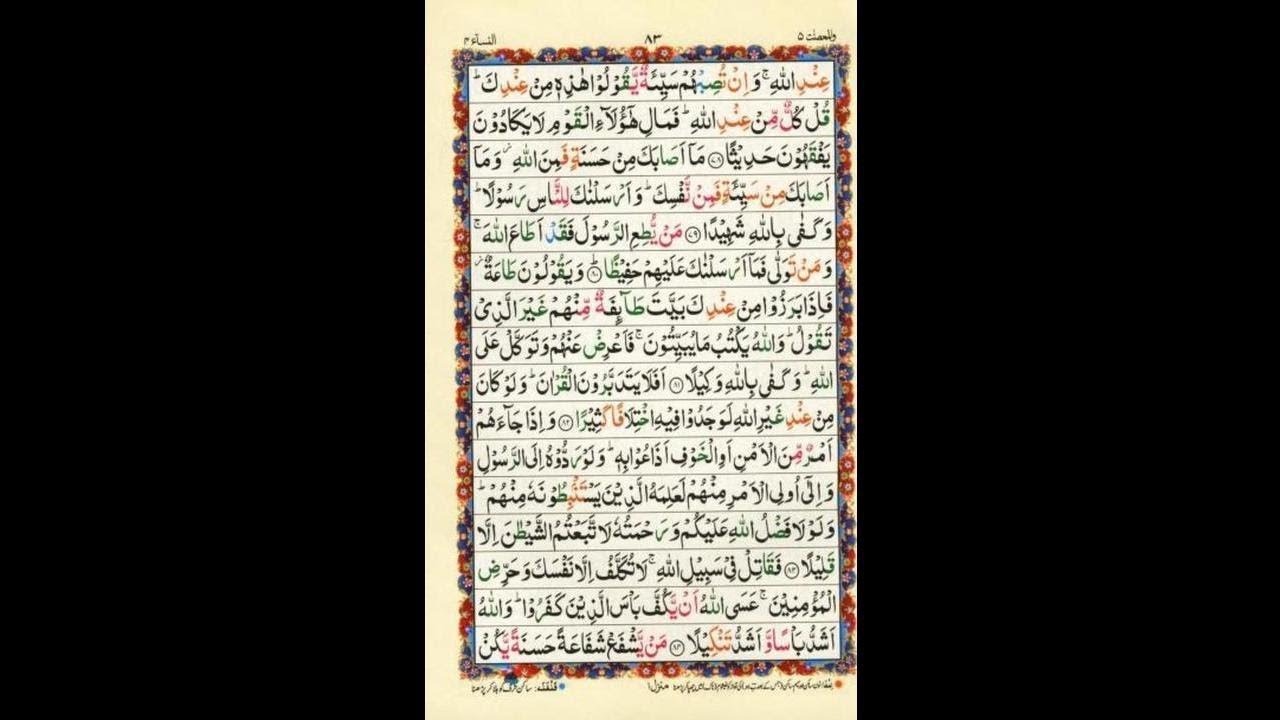 والمحصنت ۵ ۸۳ النساء ۴
عِنْدِ اللّٰهِ ۚ وَ اِنْ تُصِبْهُمْ سَيِّئَةٌ يَّقُوْلُوْا هٰذِهٖ مِنْ عِنْدِكَ ؕ
قُلْ كُلٌّ مِّنْ عِنْدِ اللّٰهِ ؕ فَمَالِ هٰۤؤُلَآءِ الْقَوْمِ لَا يَكَادُوْنَ
يَفْقَهُوْنَ حَدِيْثًا ﴿۷۸﴾ مَاۤ اَصَابَكَ مِنْ حَسَنَةٍ فَمِنَ اللّٰهِ ۫ وَ مَاۤ
اَصَابَكَ مِنْ سَيِّئَةٍ فَمِنْ نَّفْسِكَ ؕ وَ اَرْسَلْنٰكَ لِلنَّاسِ رَسُوْلًا ؕ
وَ كَفٰى بِاللّٰهِ شَهِيْدًا ﴿۷۹﴾ مَنْ يُّطِعِ الرَّسُوْلَ فَقَدْ اَطَاعَ اللّٰهَ ۚ
وَ مَنْ تَوَلّٰى فَمَاۤ اَرْسَلْنٰكَ عَلَيْهِمْ حَفِيْظًا ﴿۸۰﴾ وَ يَقُوْلُوْنَ طَاعَةٌ ۫
فَاِذَا بَرَزُوْا مِنْ عِنْدِكَ بَيَّتَ طَآئِفَةٌ مِّنْهُمْ غَيْرَ الَّذِيْ
تَقُوْلُ ؕ وَ اللّٰهُ يَكْتُبُ مَا يُبَيِّتُوْنَ ۚ فَاَعْرِضْ عَنْهُمْ وَ تَوَكَّلْ عَلَى
اللّٰهِ ؕ وَ كَفٰى بِاللّٰهِ وَكِيْلًا ﴿۸۱﴾ اَفَلَا يَتَدَبَّرُوْنَ الْقُرْاٰنَ ؕ وَ لَوْ كَانَ
مِنْ عِنْدِ غَيْرِ اللّٰهِ لَوَجَدُوْا فِيْهِ اخْتِلَافًا كَثِيْرًا ﴿۸۲﴾ وَ اِذَا جَآءَهُمْ
اَمْرٌ مِّنَ الْاَمْنِ اَوِ الْخَوْفِ اَذَاعُوْا بِهٖ ؕ وَ لَوْ رَدُّوْهُ اِلَى الرَّسُوْلِ
وَ اِلٰۤى اُولِي الْاَمْرِ مِنْهُمْ لَعَلِمَهُ الَّذِيْنَ يَسْتَنْۢبِطُوْنَهٗ مِنْهُمْ ؕ
وَ لَوْ لَا فَضْلُ اللّٰهِ عَلَيْكُمْ وَ رَحْمَتُهٗ لَاتَّبَعْتُمُ الشَّيْطٰنَ اِلَّا
قَلِيْلًا ﴿۸۳﴾ فَقَاتِلْ فِيْ سَبِيْلِ اللّٰهِ ۚ لَا تُكَلَّفُ اِلَّا نَفْسَكَ وَ حَرِّضِ
الْمُؤْمِنِيْنَ ۚ عَسَى اللّٰهُ اَنْ يَّكُفَّ بَاْسَ الَّذِيْنَ كَفَرُوْا ؕ وَ اللّٰهُ
اَشَدُّ بَاْسًا وَّ اَشَدُّ تَنْكِيْلًا ﴿۸۴﴾ مَنْ يَّشْفَعْ شَفَاعَةً حَسَنَةً يَّكُنْ
منزل ۱ قلقلہ: ساکن حرف کو ہلا کر پڑھنا